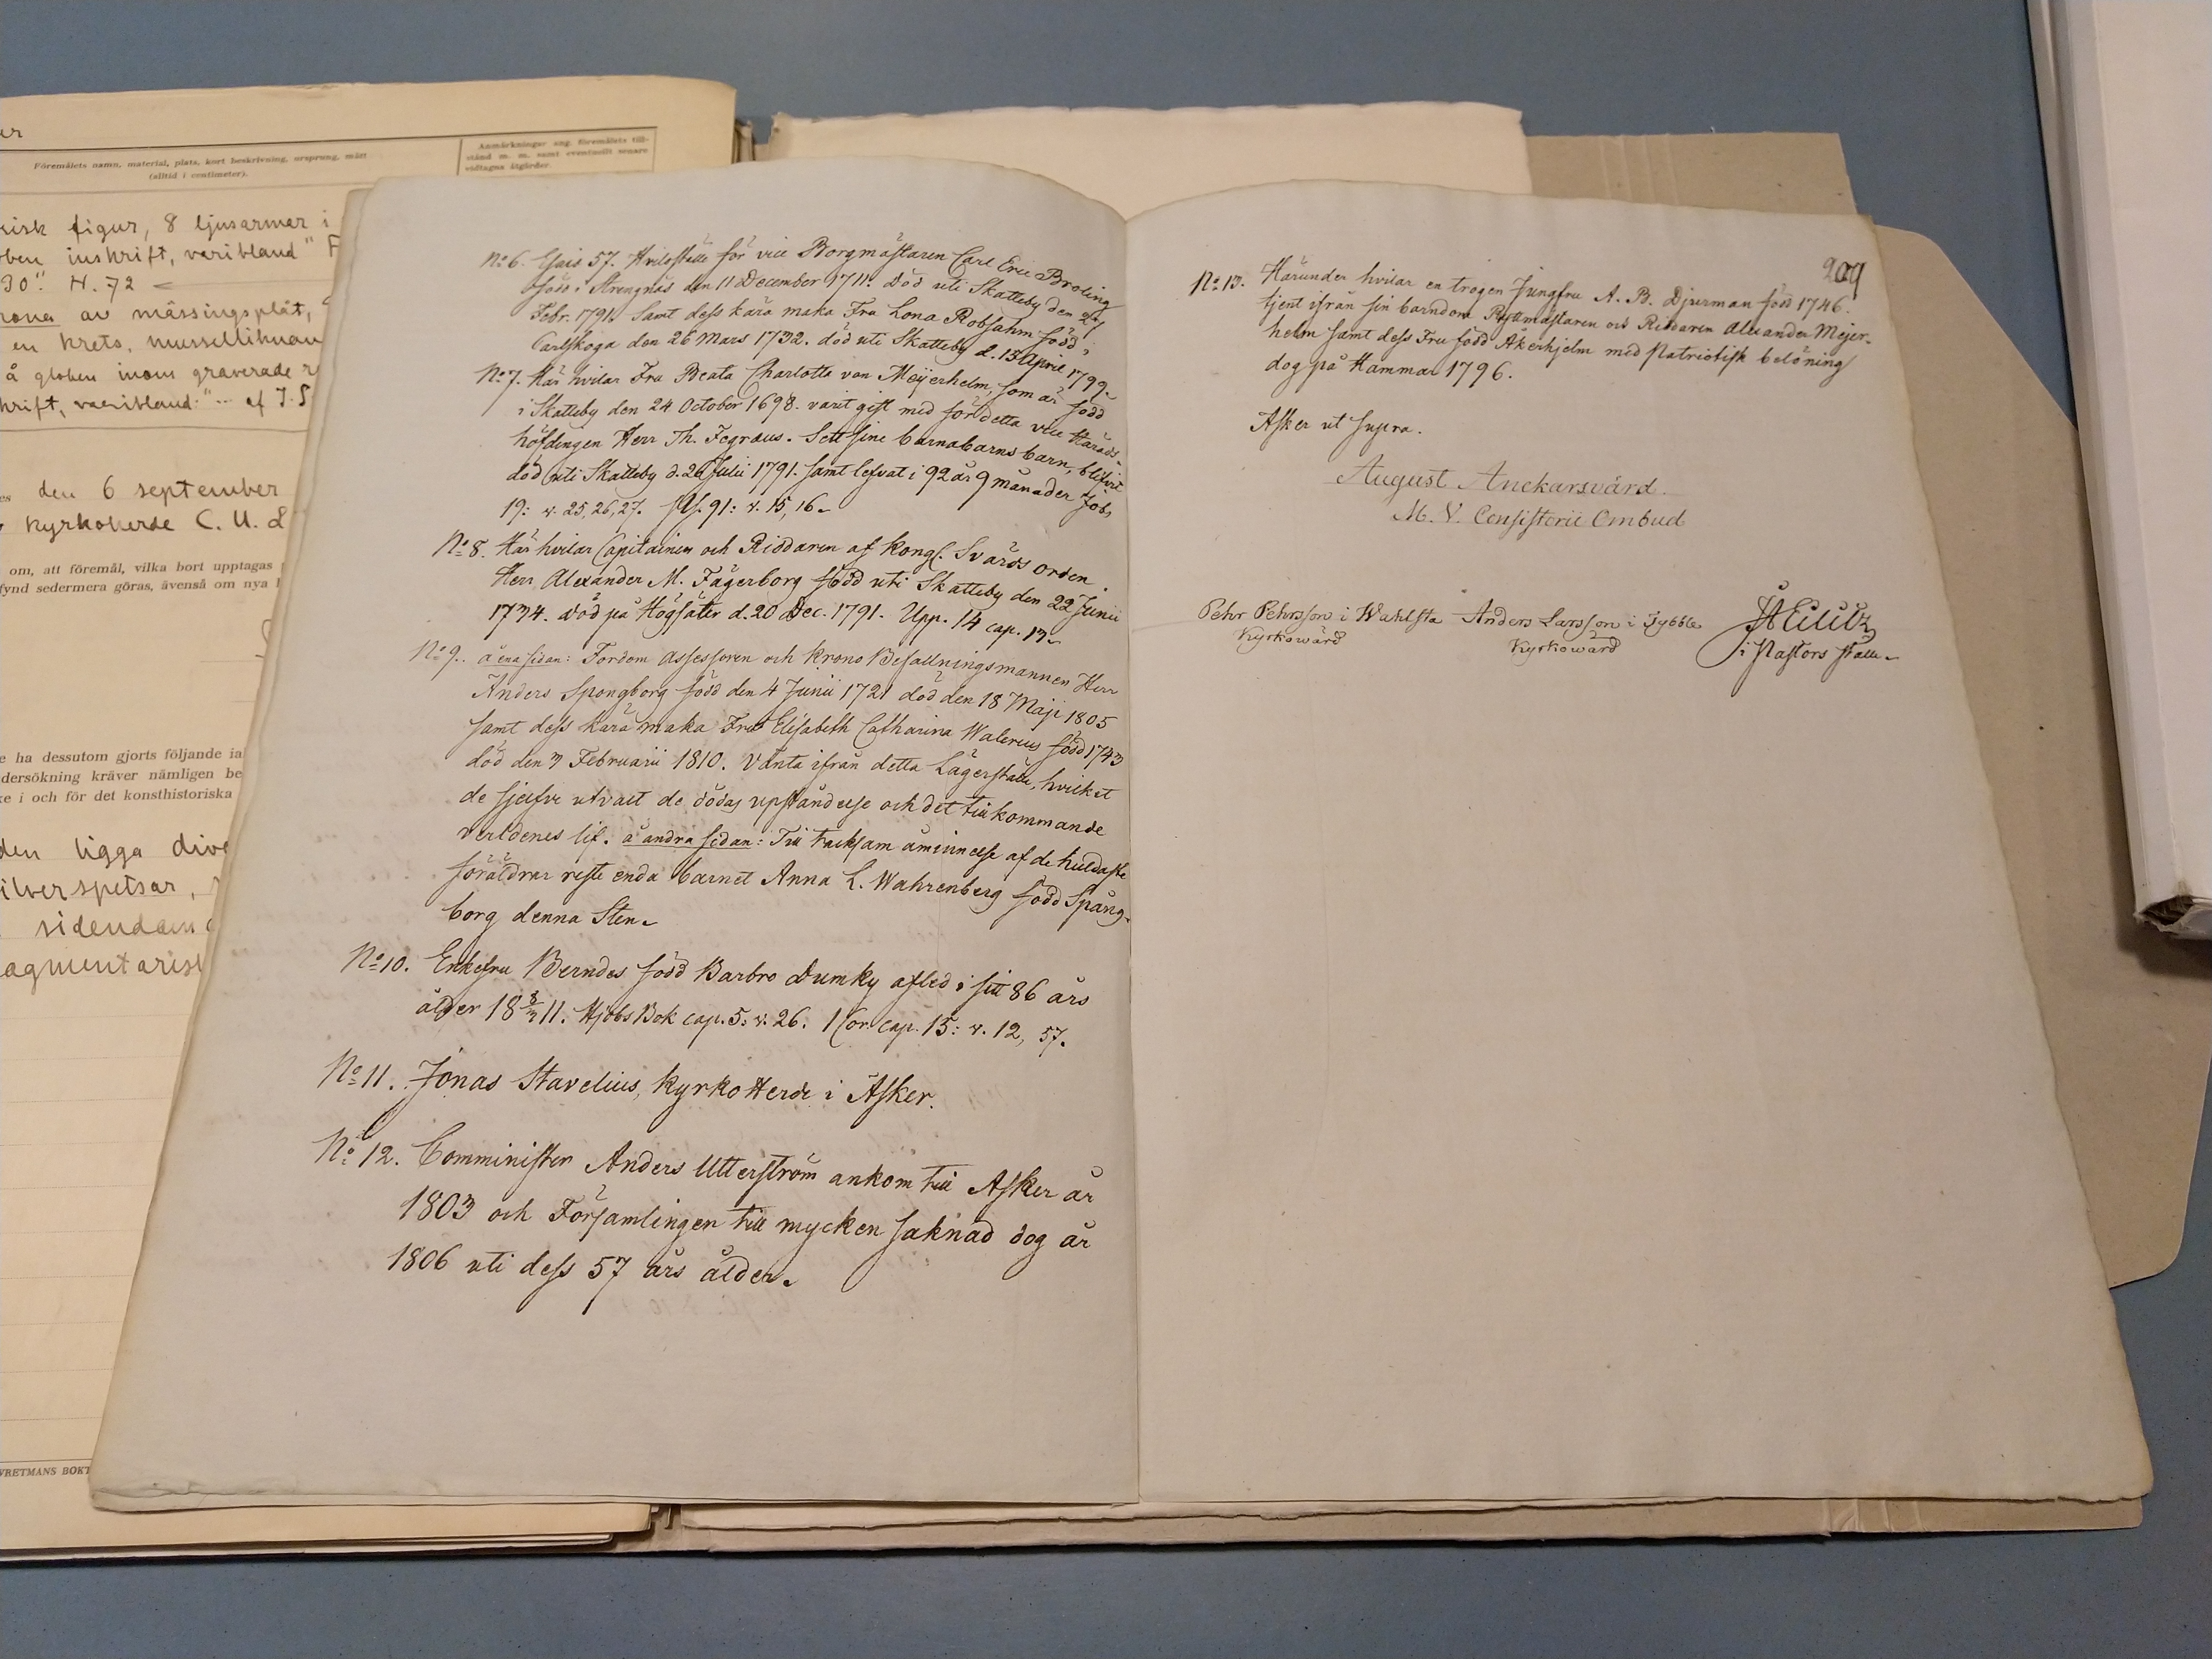 Föremålets namn, material, plats, kort beskrivning, ursprung, mått
(alltid i centimeter).
Anmärkningar ang. föremålets till-
stånd m. m. samt eventuellt senare
vidtagna åtgärder.
figur, 8 ljusarmar i
inskrift, varibland "
30". H. 72
av mässingsplåt,
en krets,
å globen inom graverade
den 6 september
Kyrkoherde C. U.
om, att föremål, vilka bort upptagas
fynd sedermera göras, ävenså om nya
ha dessutom gjorts följande
dersökning kräver nämligen be
i och för det konsthistoriska
den ligga
silverspetsar,
VRETMANS BOKT
No 6. Esais 57. Hvilostelle för vice Borgmästaren Carl Eric Broling
född i Strengnäs den 11 December 1711. Död uti Skatteby den 27
Febr. 1791. Samt dess kära maka Fru Lona Robsahm född i
Carlskoga den 26 Mars 1732. död uti Skatteby d. 13 Aprill 1799.
No 7. Här hvilar Fru Beata Charlotta von Meijerhelm, som är född
i Skatteby den 24 October 1698. varit gift med för detta vice Härads-
höfdingen Herr Th. Fegræus. Sett sine barnabarns barn, blifvit
död uti Skatteby d. 26 Julii 1791. samt lefvat i 92 år 9 månader Jobs
19: v. 25, 26, 27. Ps. 91: v. 15, 16.
No 8. Här hvilar Capitainen och Riddaren af Kongl. Svärds orden
Herr Alexander M. Fägerborg född uti Skatteby den 22 Junii
1734. död på Högsäter d. 20 Dec. 1791. Upp. 14 cap. 13.
No 9. å ena sidan: Fordom Assessoren och Krono Befallningsmannen Herr
Anders Spongborg född den 4 Junii 1721 död den 18 Maji 1805
samt dess kära maka Fru Elisabeth Catharina Walerius född 1743
död den 3 Februarii 1810. Vänta ifrån detta Lägerställe, hvilket
de sjelfve utvalt de dödas upståndelse och det tillkommande
verldenes lif. å andra sidan: Till tacksam åminnelse af de huldaste
föräldrar reste enda barnet Anna L. Wahrenberg född Spång-
borg denna Sten.
No 10. Enkefru Berndes född Barbro Dumky afled i sitt 86 års
ålder 18 8/3 11. Hjobs Bok cap. 5: v. 26. 1 Cor. cap. 15: v. 12, 57.
No 11. Jonas Stavelius, KyrkoHerde i Asker.
No 12. Comminister Anders Utterström ankom till Asker år
1803 och Församlingen till mycken saknad dog år
1806 uti dess 57 års ålder.
209
No 13. Härunder hvilar en trogen Jungfru A. B. Djurman född 1746.
tjent ifrån sin barndom Ryttmästaren och Riddaren Alexander Mejer-
helm samt dess Fru född Åkerhjelm med Patriotisk belöning
dog på Hammar 1796.
Asker ut supra.
August Anckarsvärd.
M. V. Consistorii Ombud
Pehr Pehrsson i Wahlsta Anders Larsson i Tybble
Kyrkowärd Kyrkowärd i Pastors ställe